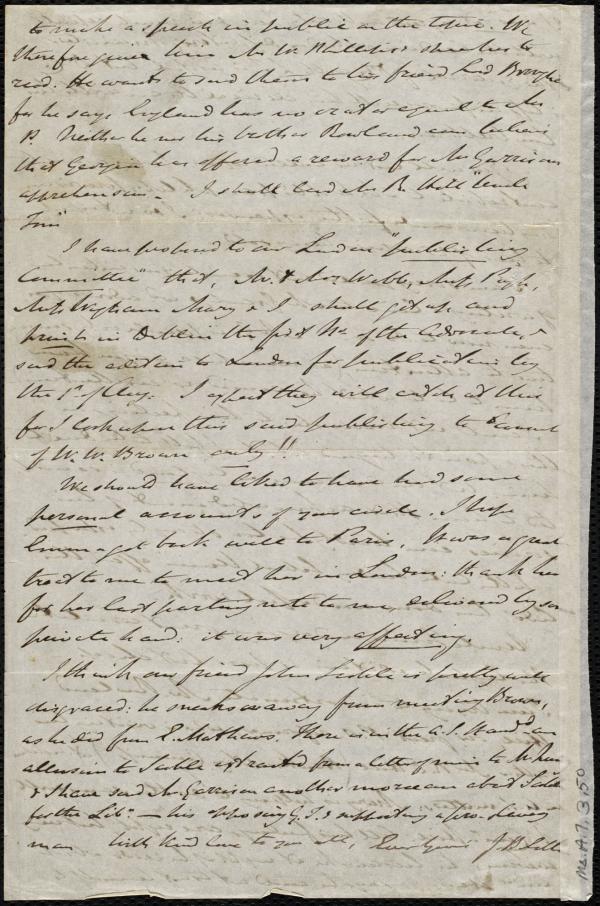 to make a speech in public on the topic. We
therefore gave him Mr W. Phillips's speeches to
read. He wants to send them to his friend Lord Brougham
for he says England has no orator equal to Mr
P. Neither he nor his brother Rowland can believe
that Georgia has offered a reward for Mr Garrison's
apprehension. I shall lend Mr R. Hill "Uncle
Tom"
I have proposed to our London "publishing
Committee" that, Mr. & Mrs Webb, Miss Pugh,
Mrs Wigham Mary & I shall get up and
print in Dublin the first No. of the Advocate, &
send the edition to London for publication by
the 1st of Aug. I expect they will catch at this
for I look upon this said publishing to consist
of W. W. Brown only!!
We should have liked to have had some
personal accounts of your circle. I hope
Emma got back well to Paris. It was a great
treat to me to meet her in London: thank her
for her last parting note to me, delivered by
private hand: it was very affecting.
I think our friend John is pretty well
disgraced: he sneaks away from meeting Brown,
as he did from E. Mathews. There is in the A. S. Standd an
allusion to extracted from a letter of mine to Mr
& I have sent Mr Garrison another morceau about
for the Libr — his opposing G. T. & supporting a pro-slavery
man. With kind love to you all, Ever yours J B Estlin
Ms. A. 7. 3. 50